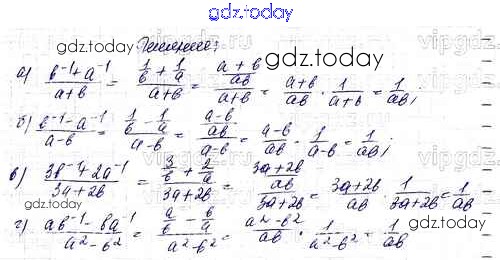 gdz.today
Решение:
gdz.today
gdz.today
а) (b⁻¹+a⁻¹)/(a+b) = (1/b + 1/a)/(a+b) = ((a+b)/ab)/(a+b) = (a+b)/ab · 1/(a+b) = 1/ab;
б) (b⁻¹-a⁻¹)/(a-b) = (1/b - 1/a)/(a-b) = ((a-b)/ab)/(a-b) = (a-b)/ab · 1/(a-b) = 1/ab;
в) (3b⁻¹+2a⁻¹)/(3a+2b) = (3/b + 2/a)/(3a+2b) = ((3a+2b)/ab)/(3a+2b) = (3a+2b)/ab · 1/(3a+2b) = 1/ab
г) (ab⁻¹-ba⁻¹)/(a²-b²) = (a/b - b/a)/(a²-b²) = (a²-b²)/ab · 1/(a²-b²) = 1/ab
gdz.today
gdz.today